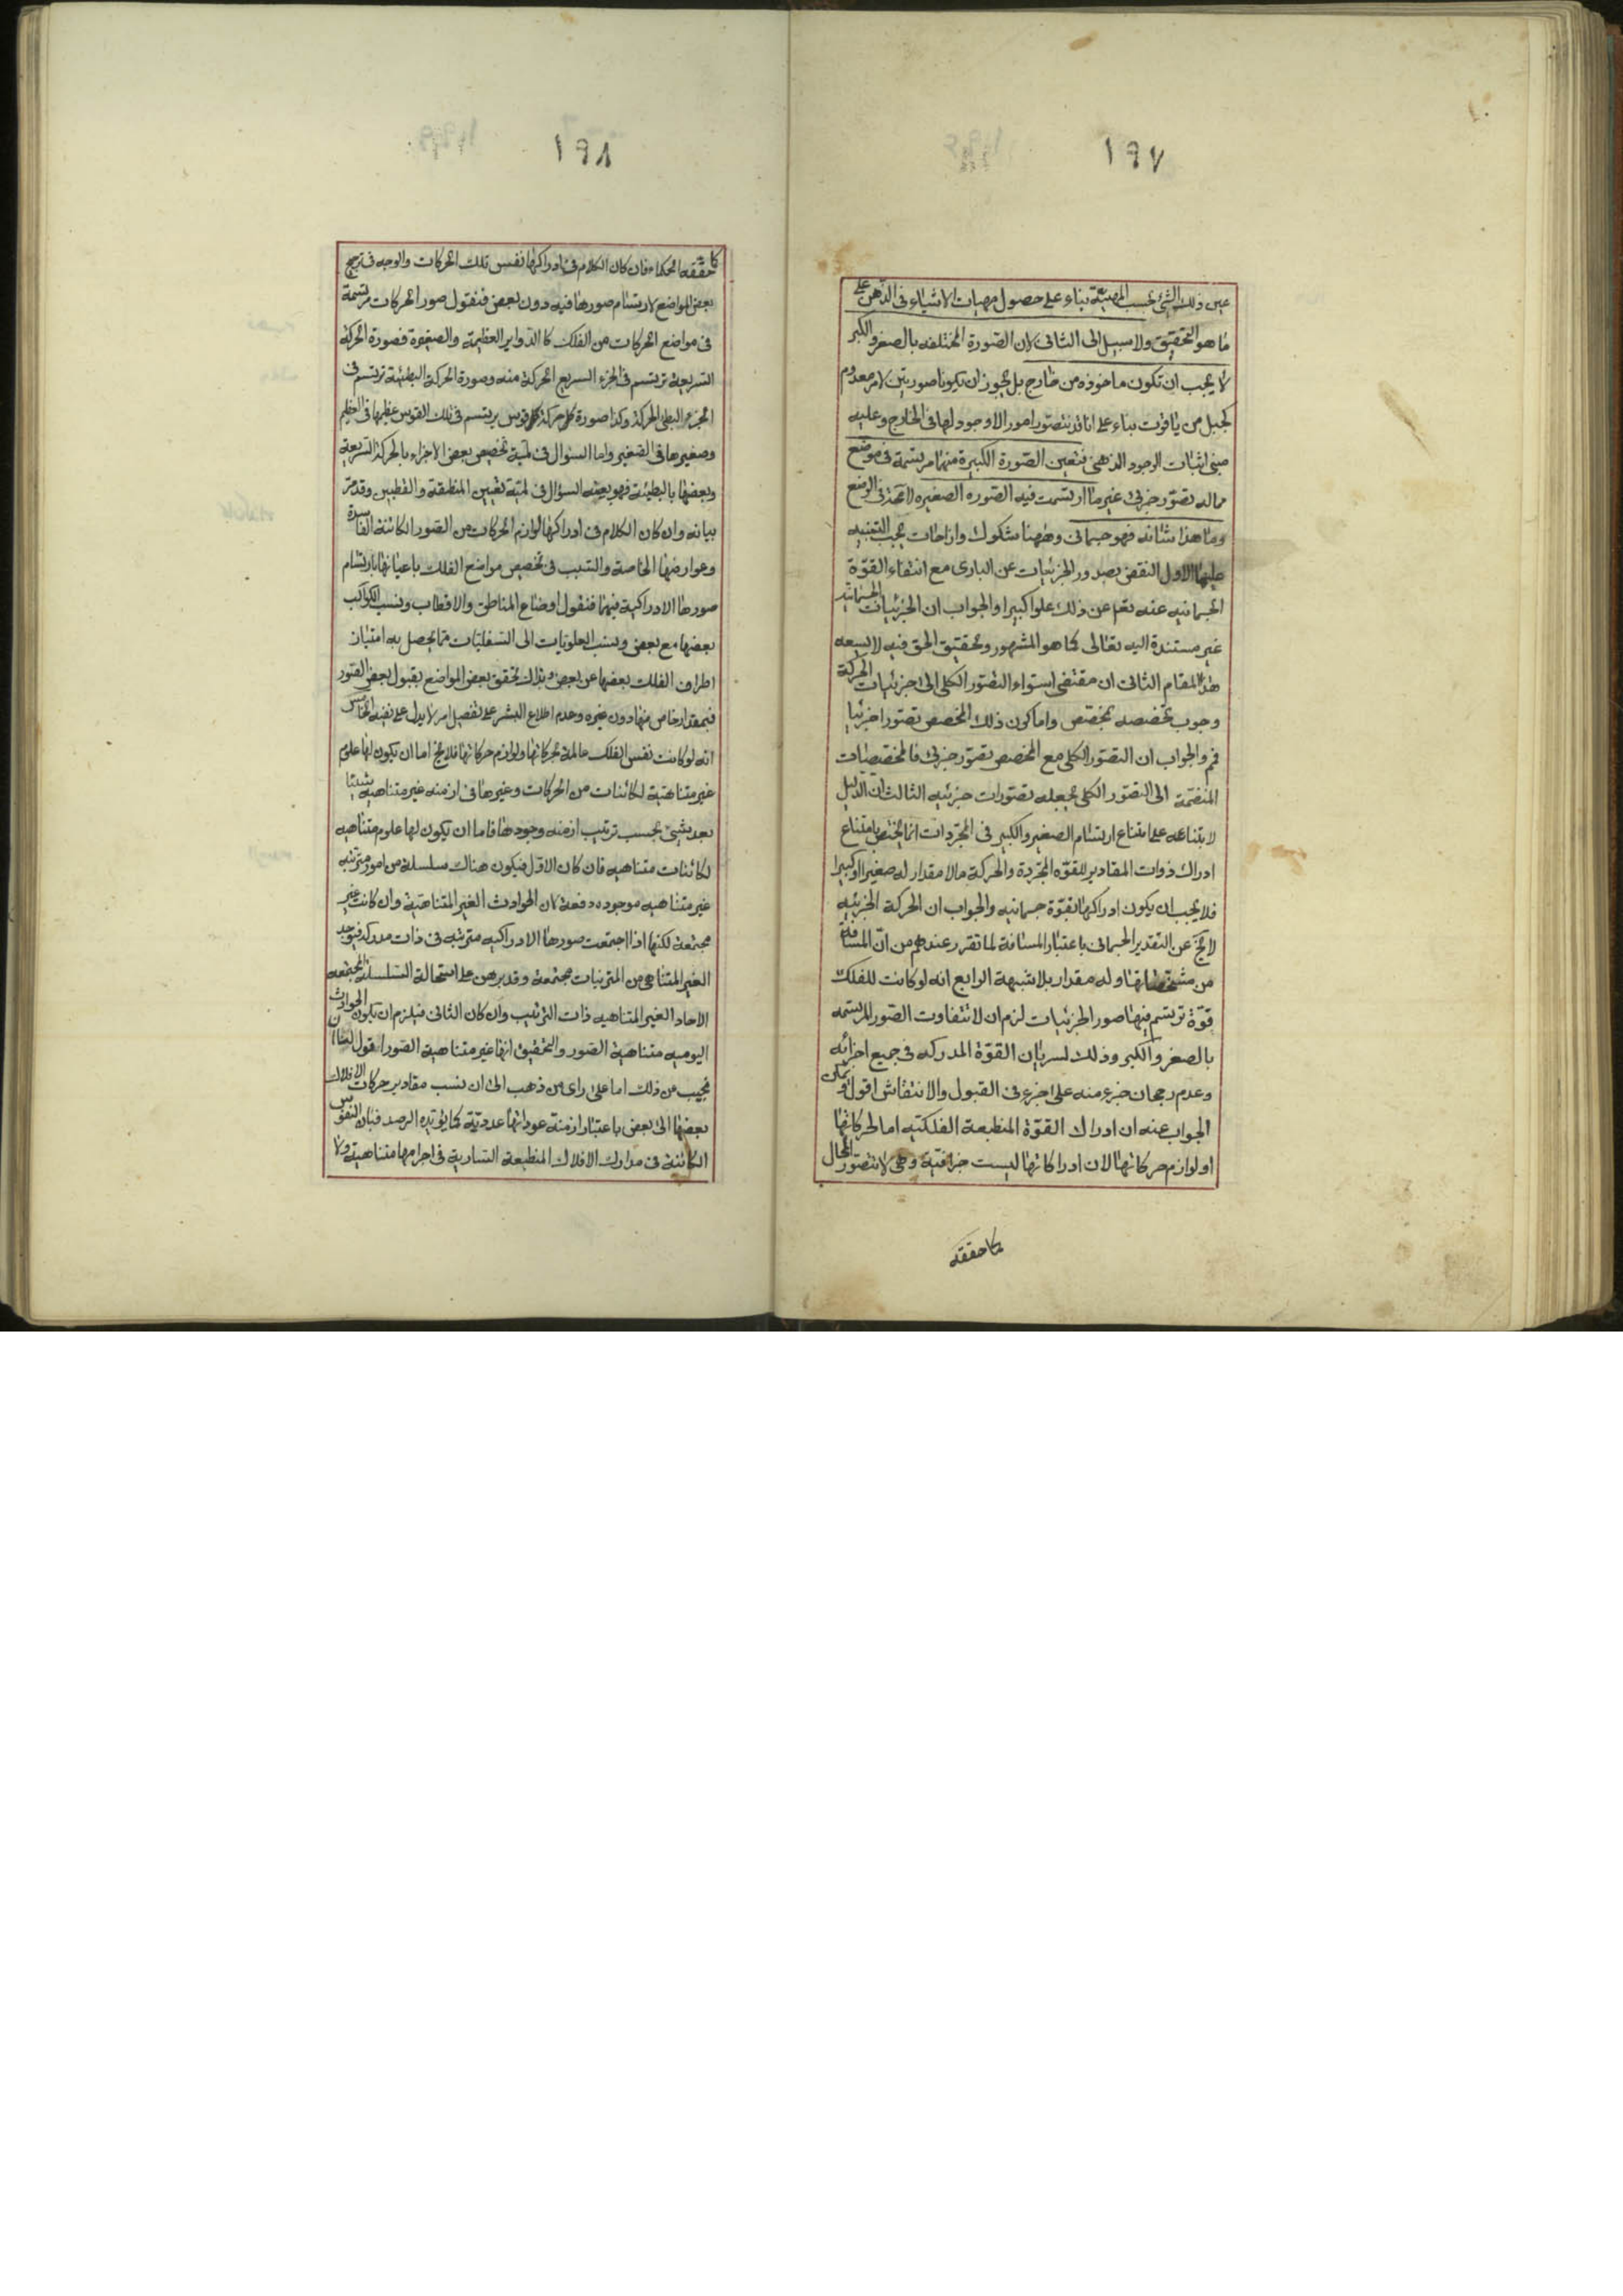 ١٩٧
عين ذلك الشئ بحسب المهية بناء على حصول مهيات الاشياء فى الذهن على
ما هو التحقيق ولا سبيل الى الثانى لان الصورة المختلفه بالصغر والكبر
لا يجب ان تكون ماخوذه من خارج بل يجوز ان يكونا صورتين لامر معدوم
كجبل من ياقوت بناء على انا قد نتصور امورا لا وجود لها فى الخارج وعليه
مبنى اثبات الوجود الذهنى فتعين الصورة الكبيرة منهما مرتسمة فى موضع
مما له تصور جزئى غير ما ارتسمت فيه الصوره الصغيره لا تتحد فى الوضع
وما هذا شانه فهو جسمانى وههنا شكوك وازاحات يجب التنبيه
عليها الاول النقض بصدور الجزئيات عن البارى مع انتفاء القوة
الجسمانيه عنه تعالى عن ذلك علوا كبيرا والجواب ان الجزئيات الجسمانية
غير مستندة اليه تعالى كما هو المشهور وتحقيق الحق فيه لا يسعه
هذا المقام الثانى ان مقتضى استواء التصور الكلى الى جزئيات الحركة
وجوب تخصصه بمخصص واما كون ذلك المخصص تصورا جزئيا
فمم والجواب ان التصور الكلى مع المخصص تصور جزئى فالمخصصات
المنضمة الى التصور الكلى يجعله تصورات جزئيه الثالث ان الدليل
لابتنائه على امتناع ارتسام الصغير والكبير فى المجردات انما يختص بامتناع
ادراك ذوات المقادير للقوه المجردة والحركة مما لا مقدار له صغيرا او كبيرا
فلا يجب ان يكون ادراكها بقوة جسمانيه والجواب ان الحركة الجزئيه
لا تخ عن التقدير الجسمانى باعتبار المسافة لما تقرر عندهم من ان المسافة
من مشخصاتها وله مقدار بلا شبهة الرابع انه لو كانت للفلك
قوة ترتسم فيها صور الجزئيات لزم ان لا تتفاوت الصور المرتسمه
بالصغر والكبر وذلك لسريان القوة المدركه فى جميع اجزائه
وعدم رجحان جزء منه على اجزء فى القبول والانتقاش اقول و يمكن
الجواب عنه ان ادراك القوة المنطبعة الفلكية اما لحركاتها
او لوازم حركاتها لان ادراكاتها ليست جزافية وهى لا تتصور المحال
كما حققه
١٩٨
كما حققه الحكماء فان كان الكلام فى ادراكها نفس تلك الحركات والوجه فى ترجيح
بعض المواضع لارتسام صورها فيه دون بعض فنقول صور الحركات مرتسمة
فى مواضع الحركات من الفلك كالدواير العظيمة والصغيرة فصورة الحركة
السريعة ترتسم فى الجزء السريع الحركة منه وصورة الحركة البطيئة ترتسم فى
الجزء البطى الحركة وكذا صورة كل حركة كل قوس يرتسم فى تلك القوس عظيمها فى العظيم
وصغيرها فى الصغير واما السئوال فى لمية تخصيص بعض الاجزاء بالحركة السريعة
وبعضها بالبطيئة فهو بعينه السؤال فى لمية تعيين المنطقة والقطبين وقد مر
بيانه وان كان الكلام فى ادراكها لوازم الحركات من الصور الكائنة الفاسدة
وعوارضها الخاصة والسبب فى تخصيص مواضع الفلك باعيانها بارتسام
صورها الادراكية فيها فنقول اوضاع المناطق والاقطاب ونسب الكواكب
بعضها مع بعض ونسب العلويات الى السفليات مما يحصل به امتياز
اطراف الفلك بعضها عن بعض وبذلك تحقق بعض المواضع بقبول بعض الصور
فبمقدار خاص منها دون غيره وعدم اطلاع البشر على تفصيل امر لا يدل على نفيه الخامس
انه لو كانت نفس الفلك عالمة بحركاتها ولوازم حركاتها فلا يخ اما ان يكون لها علوم
غير متناهية لكائنات من الحركات وغيرها فى ازمنه غير متناهيه شيئا
بعد شئ بحسب ترتيب ازمنه وجودها فاما ان يكون لها علوم متناهيه
لكائنات متناهيه فان كان الاول فيكون هناك سلسلة من امور مترتبه
غير متناهيه موجوده دفعة لان الحوادث الغير المتناهية وان كانت غير
مجتمعة لكنها اذا اجتمعت صورها الادراكيه مترتبه فى ذات مدركه فيوجد
الغير المتناهى من المترتبات مجتمعة وقد برهن على استحالة السلسلة المجتمعه
الاحاد الغير المتناهيه ذات الترتيب وان كان الثانى فيلزم ان يكون الحوادث
اليوميه متناهية الصور والتحقيق انها غير متناهية الصور اقول لنا ان
نجيب عن ذلك اما على راى من ذهب الى ان نسب مقادير حركات الافلاك
بعضها الى بعض باعتبار ازمنة عوداتها عددية كما يؤيده الرصد فبان النفوس
الكائنة فى مدارك الافلاك المنطبعة السارية فى اجرامها متناهية ولا